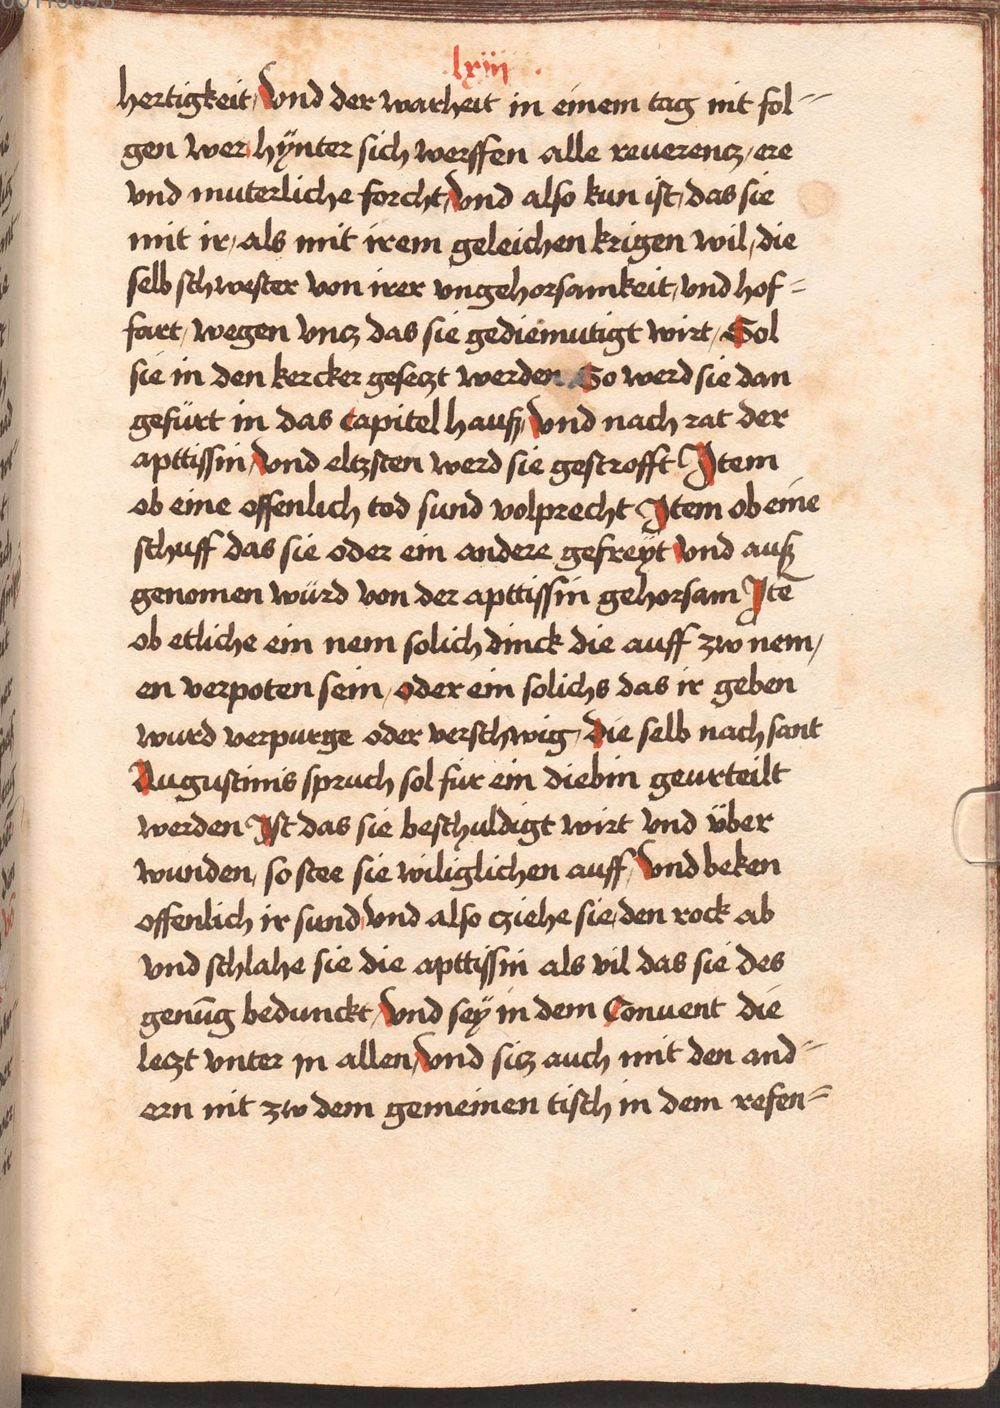 .lxiii.
hertigkeit, Vnd der warheit in einem tag nit fol=
gen wer hÿnter sich werffen alle reuerencz, ere
vnd muterliche forcht, Vnd also kun ist, das sie
mit ir, als mit irem geleichen krigen wil, die
selb schwester von irer vngehorsamkeit, vnd hof=
fart, wegen vncz das sie gediemutigt wirt, Sol
sie in den kercker geseczt werden So werd sie dan
gefürt in das Capitel hauß, Vnd nach rat der
apttissin, Vnd eltzsten werd sie gestrofft Item
ob eine offenlich tod sund volprecht Item ob eine
schuff das sie oder ein andere gefreÿt Vnd auß
genomen würd von der apttissin gehorsam Itē
ob etliche ein nem solich dinck die auff zw nem,
en verpoten sein, oder ein solichs das ir geben
wurd verpurge oder verschwig, die selb nach sant
Augustinis spruch sol fur ein diebin geurteilt
werden Ist das sie beschuldigt wirt vnd über
wunden, so stee sie wiliglichen auff, Vnd beken
offenlich ir sund, vnd also cziehe sie, den rock ab
vnd schlahe sie die apttissin als vil das sie des
genūg bedunckt, Vnd seÿ in dem Conuent die
leczt vnter jn allen, Vnd sicz auch mit den and=
ern nit zw dem gemeinen tisch in dem refen=